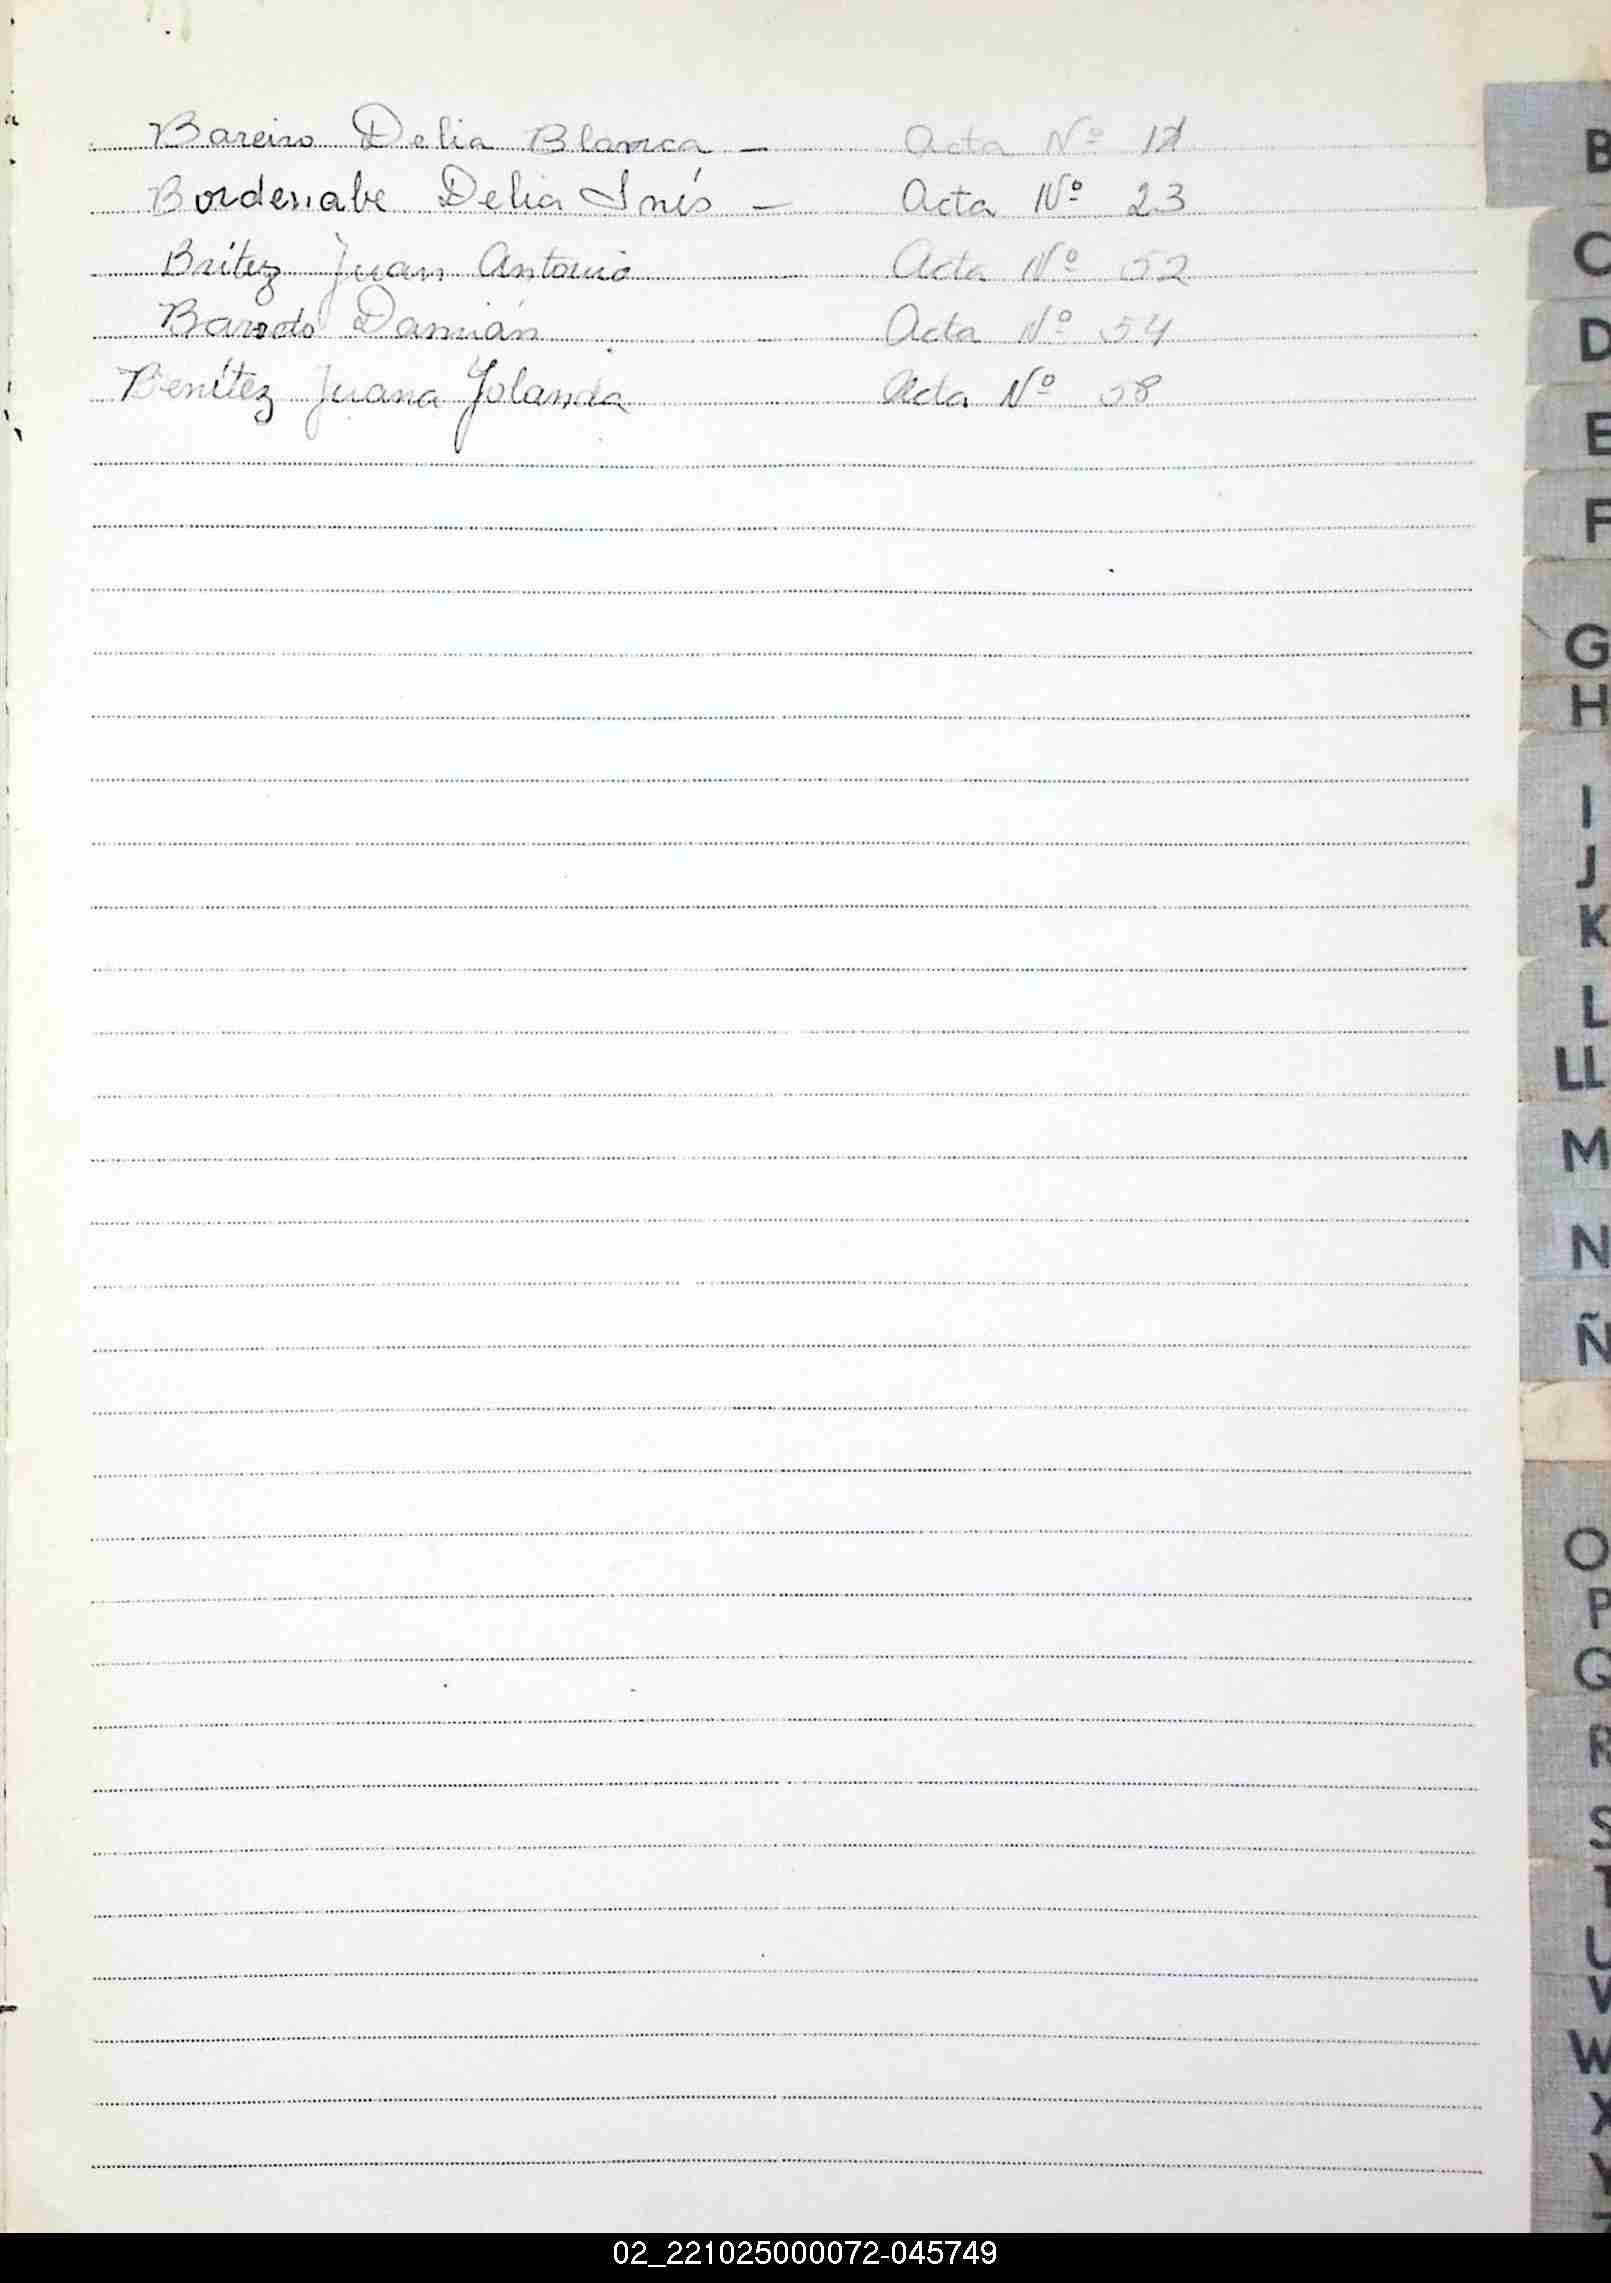 Bareiro Delia Blanca — Acta Nº
Bordenabe Delia Inés — Acta Nº 23
Britez Juan Antonio Acta Nº 52
Damián Acta Nº 54
Benítez Juana Yolanda Acta Nº 58
B
C
D
E
F
G
H
I
J
K
L
LL
M
N
Ñ
O
P
Q
R
S
T
U
V
W
X
Y
02_221025000072-045749